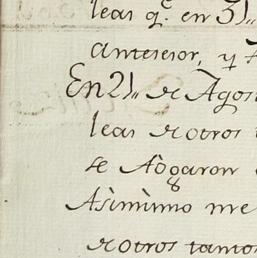 leas q.ᵉ en 31,,
antesesor, y
En 21,, de Agos
leas de otros
se Aogaron
Asimimo me
de otros tantos